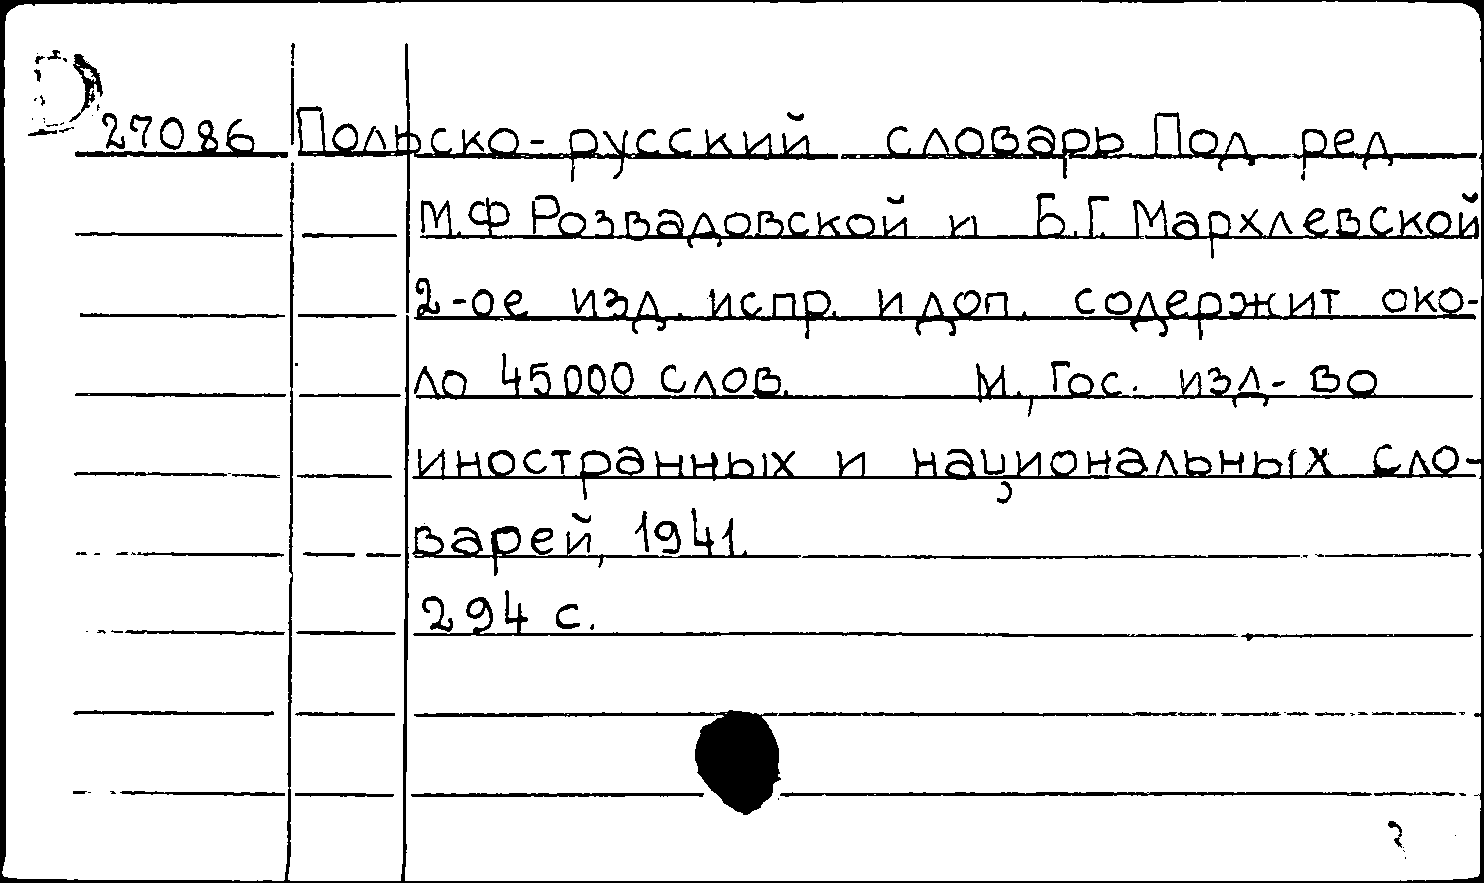 D
27086 Польско-русский словарь Под ред
М.Ф Розвадовской и Б.Г. Мархлевской
2-ое изд. испр. и доп. содержит око-
ло 45000 слов. М., Гос. изд-во
иностранных и национальных сло-
варей, 1941.
294 с.